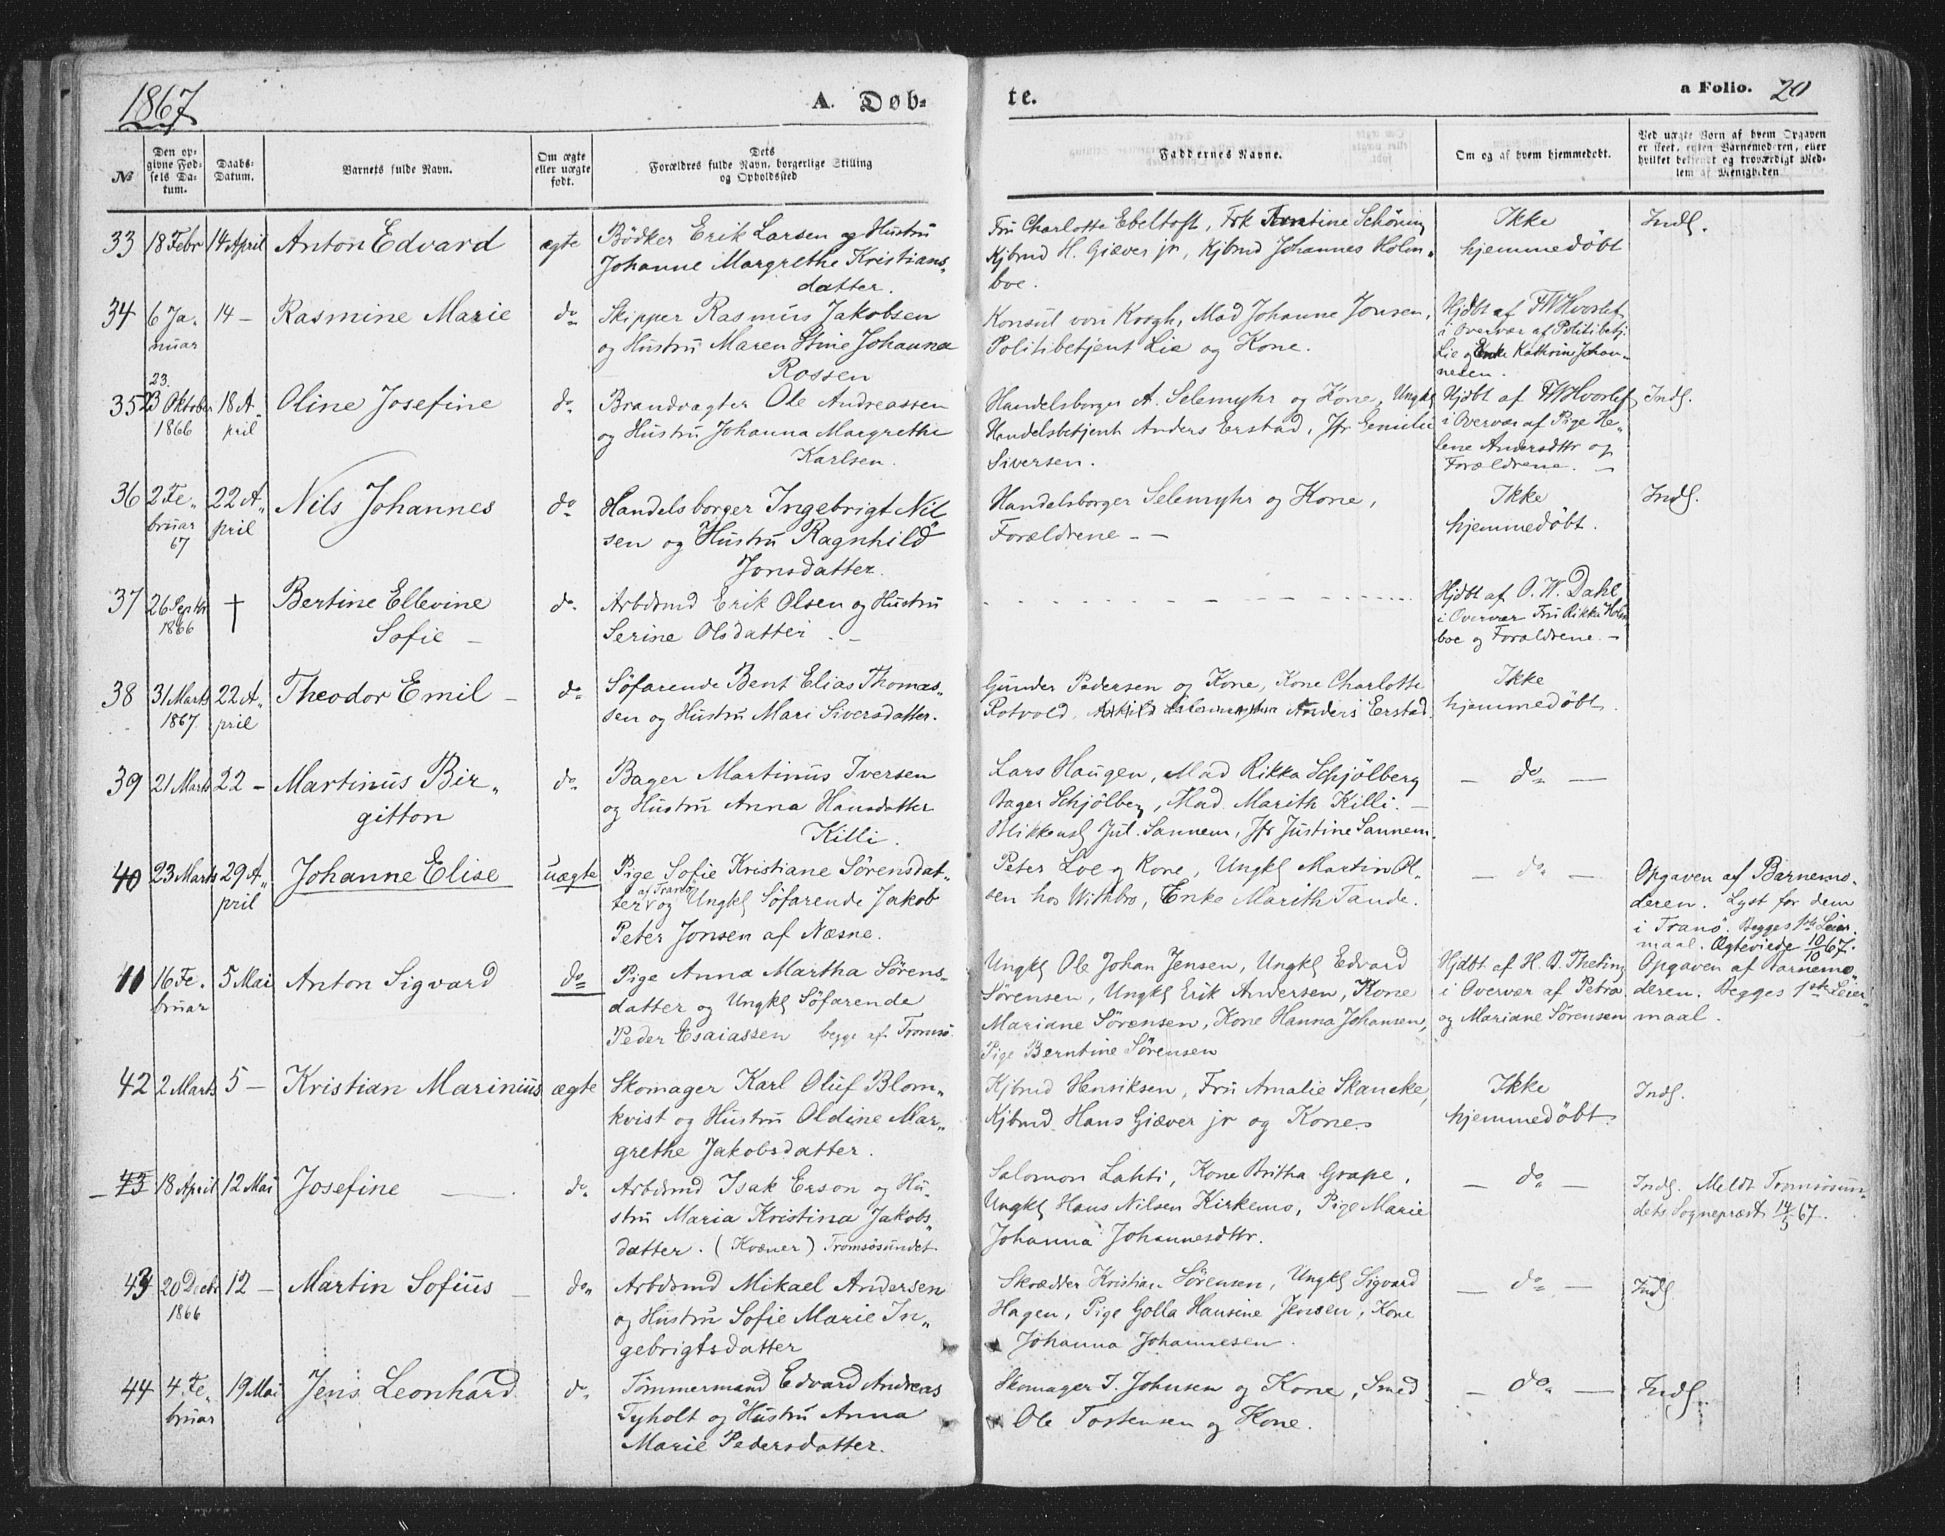 1867
A. Døb-
te.
a Folio. 20
No
Den op-
givne Fød-
sels Da-
tum.
Daabs-
Datum.
Barnets fulde Navn.
Om ægte
eller uægte
født.
Dets
Forældres fulde Navn, borgerlige Stilling
og Opholdssted
Faddernes Navne.
Om og af hvem hjemmedøbt.
Ved uægte Born af hvem Opgaven
er skeet, enten Barnemoderen, eller
hvilket bekjendt og troværdigt Med-
lem af Menigheden
33 18 Febr 14 April Anton Edvard ægte
Bödker Erik Larsen og Hustru
Johanne Margrethe Kristians-
datter.
Fru Charlotte Ebeltoft, Frk Schöning
Kjbmd H. Giæver jr, Kjbmd Johannes Holm-
boe.
Ikke
hjemmedöbt
Indf.
34 6 Ja-
nuar
14 — Rasmine Marie do
Skipper Rasmus Jakobsen
og Hustru Maren Stine Johanna
Rossen
Konsul von Krogh, Mad Johanne Jonsen,
Politibetjent Lie og Kone.
Hjdbt af FWHvoslef
i Overvær af Politibetj.
Lie og Enke Kathrine Johan-
nesen.
35 23 Oktober
1866
18 A-
pril
Oline Josefine do
Brandvagter Ole Andreassen
og Hustru Johanna Margrethe
Karlsen.
Handelsborger A. Selemyhr og Kone, Ungk
Handelsbetjent Anders Erstad, Jfr Emilie
Siversen.
Hjdbt af FWHvoslef
i Overvær af Pige He-
lene Andersdttr og
Forældrene. —
Indf.
36 2 Fe-
bruar
67
22 A-
pril
Nils Johannes do
Handelsborger Ingebrigt Nil-
sen og Hustru Ragnhild
Jonsdatter.
Handelsborger Selemyhr og Kone,
Forældrene — —
Ikke
hjemmedöbt.
Indf.
37 26 Septbr
1866
†
Bertine Ellevine
Sofie —
do
Arbdsmd Erik Olsen og Hustru
Serine Olsdatter. —
Hjdbt af O. W. Dahl
i Overvær Fru Rikka Holm-
boe og Forældrene. —
38 31 Marts
1867.
22 A-
pril
Theodor Emil — do
Söfarende Bent Elias Thomas-
sen og Hustru Mari Siversdatter.
Gunder Pedersen og Kone, Kone Charlotte
Rotvold, Anders Erstad.
Ikke
hjemmedöbt.
39 21 Marts 22 — Martinus Bir-
gitton
do
Bager Martinus Iversen
og Hustru Anna Hansdatter
Killi.
Lars Haugen, Mad Rikka Schjölberg
Bager Schjölberg, Mad. Marith Killi. —
Blikkensl Jul. Sannem, Jfr Justine Sannem.
— do —
40 23 Marts 29 A-
pril
Johanne Elise uægte
Pige Sofie Kristiane Sörensdat-
ter af Tranö og Ungk Söfarende Jakob
Peter Jonsen af Næsne.
Peter Loe og Kone, Ungk Martin Ol-
sen hos Withbro, Enke Marith Tande.
— do —
Opgaven af Barnemo-
deren. Lyst for dem
i Tranö. Begges 1ste Leier-
maal. Ægteviede 10/10 67.
41 16 Fe-
bruar
5 Mai Anton Sigvard do
Pige Anna Martha Sörens-
datter og Ungk Söfarende
Peder Esaiassen begge af Tromsö
Ungk Ole Johan Jensen, Ungk Edvard
Sörensen, Ungk Erik Andersen, Kone
Mariane Sörensen, Kone Hanna Johansen,
Pige Berntine Sörensen
Hjdbt af H. D. Theting
i Overvær af Petra
og Mariane Sörensen
Opgaven af Barnemo-
deren. Begges 1ste Leier-
maal.
42 2 Marts 5 — Kristian Marinius ægte
Skomager Karl Oluf Blom-
kvist og Hustru Oldine Mar-
grethe Jakobsdatter.
Kjbmd Henriksen, Fru Amalie Skancke,
Kjbmd Hans Giæver jr og Kone.
Ikke
hjemmedöbt.
Indf.
— 43 18 April 12 Mai Josefine — do
Arbdsmd Isak Erson og Hu-
stru Maria Kristina Jakobs-
datter. (Kvæner) Tromsösundet
Salomon Lahti, Kone Britha Grape,
Ungk Hans Nilsen Kirkemo, Pige Marie
Johanna Johannesdttr.
— do —
Indf. Meldt Tromsösun-
dets Sognepræst 14/5 67.
43 20 Decbr
1866
12 — Martin Sofius — do
Arbdsmd Mikael Andersen
og Hustru Sofie Marie In-
gebrigtsdatter
Skrædder Kristian Sörensen, Ungk Sigvard
Hagen, Pige Golla Hansine Jensen, Kone
Johanna Johannesen.
— do —
Indf
44 4 Fe-
bruar
19 Mai Jens Leonhard do
Tömmermand Edvard Andreas
Tyholt og Hustru Anna
Marie Pedersdatter.
Skomager J. Johnsen og Kone, Smed
Ole Tostensen og Kone.
— do —
Indf.